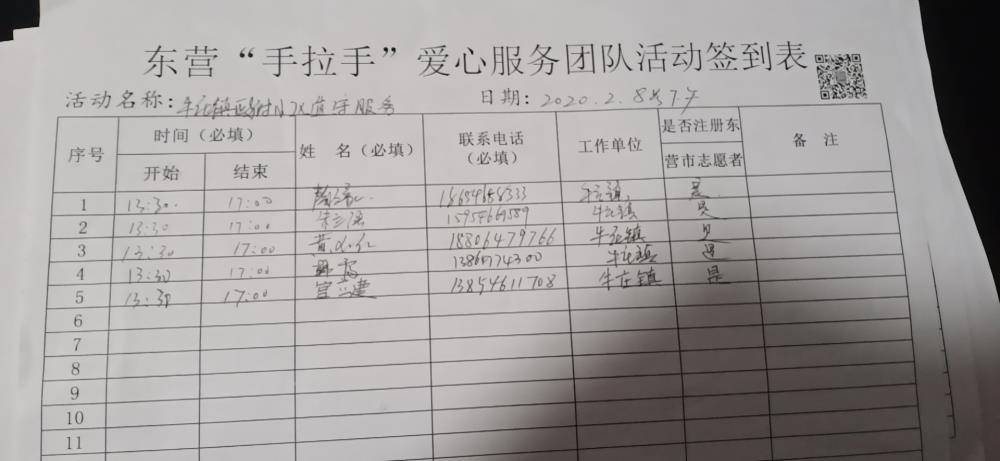 东营“手拉手”爱心服务团队活动签到表
活动名称：牛庄镇 值守服务 日期：2020.2.8 下午
序号 时间（必填） 姓 名（必填） 联系电话（必填） 工作单位 是否注册东营市志愿者 备 注
开始 结束
1 13:30 17:00 18654658333 牛庄镇 是
2 13:30 17:00 15954669589 牛庄镇 是
3 13:30 17:00 18806479766 牛庄镇 是
4 13:30 17:00 牛庄镇 是
5 13:30 17:00 13854611708 牛庄镇 是
6
7
8
9
10
11